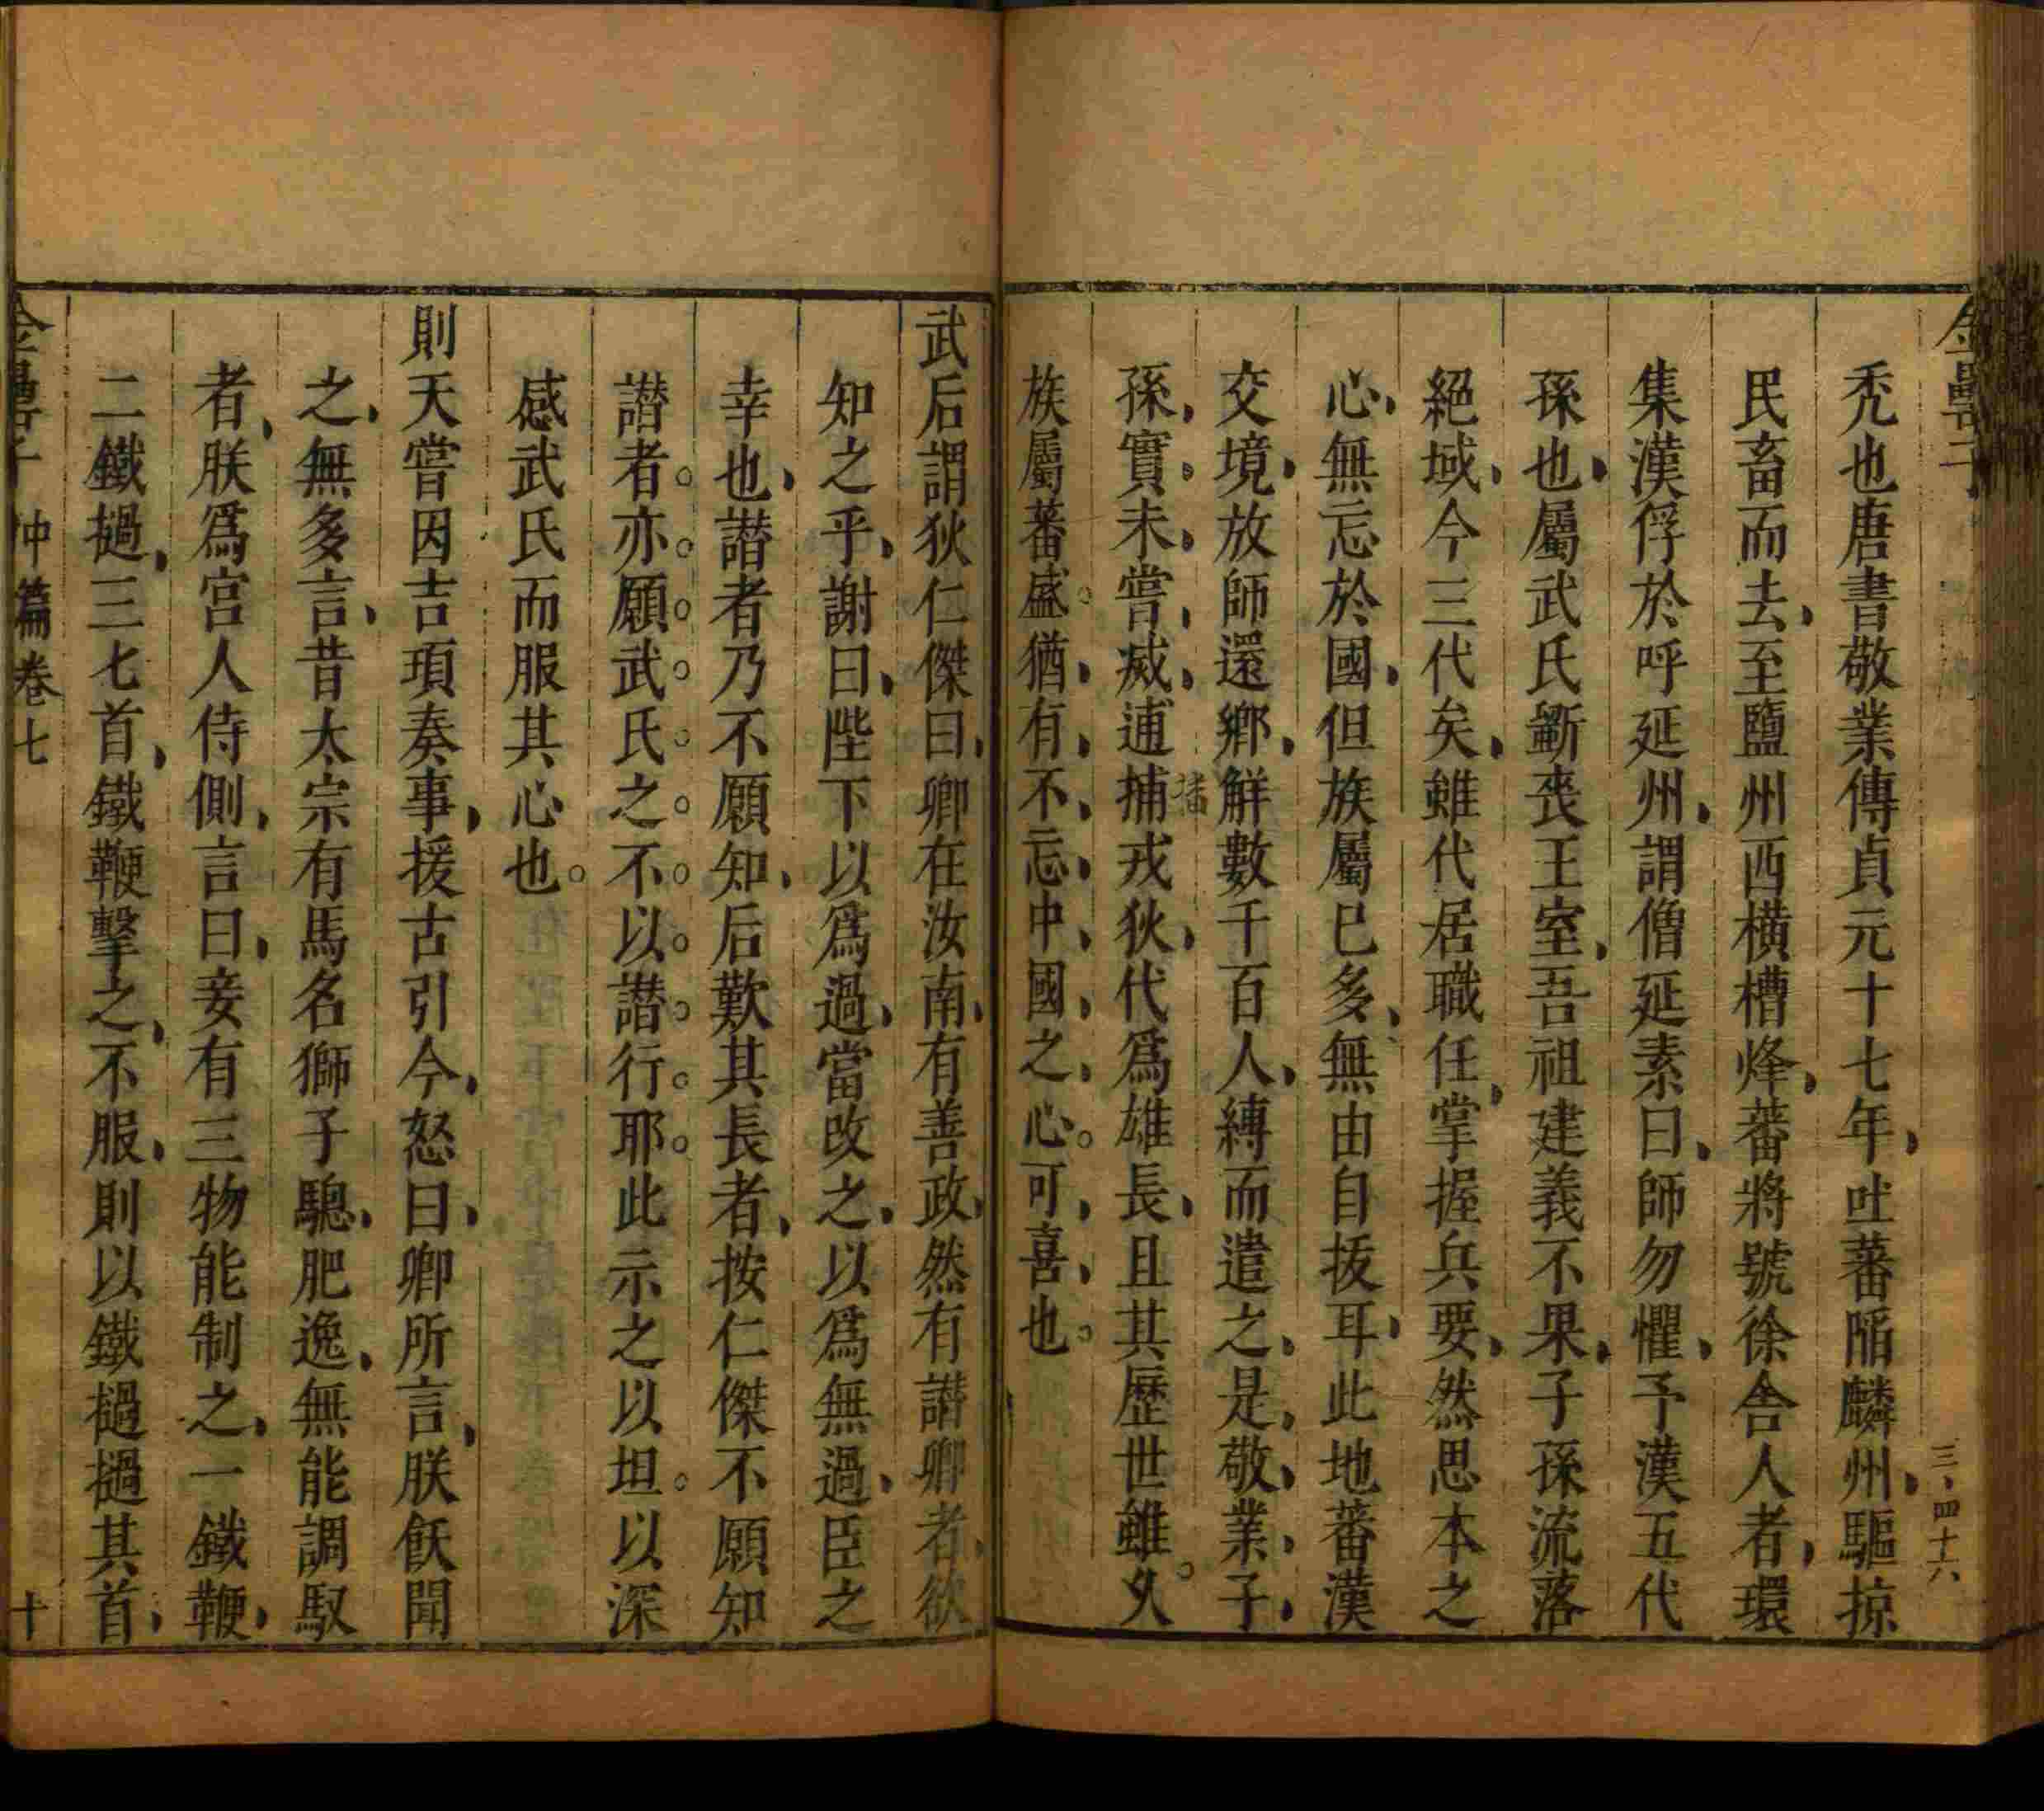 金罍子
三、四十六
禿也唐書敬業傳貞元十七年吐蕃陷麟州驅掠
民畜而去至鹽州西橫槽烽蕃將號徐舍人者環
集漢俘於呼延州謂僧延素曰師勿懼予漢五代
孫也屬武氏斷喪王室吾祖建義不果子孫流落
絕域今三代矣雖代居職任掌握兵要然思本之
心無忘於國但族屬已多無由自拔耳此地蕃漢
交境放師還鄉觧數千百人縛而遣之是敬業子
孫實未嘗滅逋捕戎狄代爲雄長且其歷世雖久
播
族屬蕃盛猶有不忘中國之心可喜也
武后謂狄仁傑曰卿在汝南有善政然有譖卿者欲
知之乎謝曰陛下以爲過當改之以爲無過臣之
幸也譖者乃不願知后歎其長者按仁傑不願知
譖者亦願武氏之不以譖行耶此示之以坦以深
感武氏而服其心也
則天嘗因吉頊奏事援古引今怒曰卿所言朕飫聞
之無多言昔太宗有馬名獅子驄肥逸無能調馭
者朕爲宮人侍側言曰妾有三物能制之一鐵鞭
二鐵撾三七首鐵鞭擊之不服則以鐵撾撾其首
金罍子 中篇卷七 十